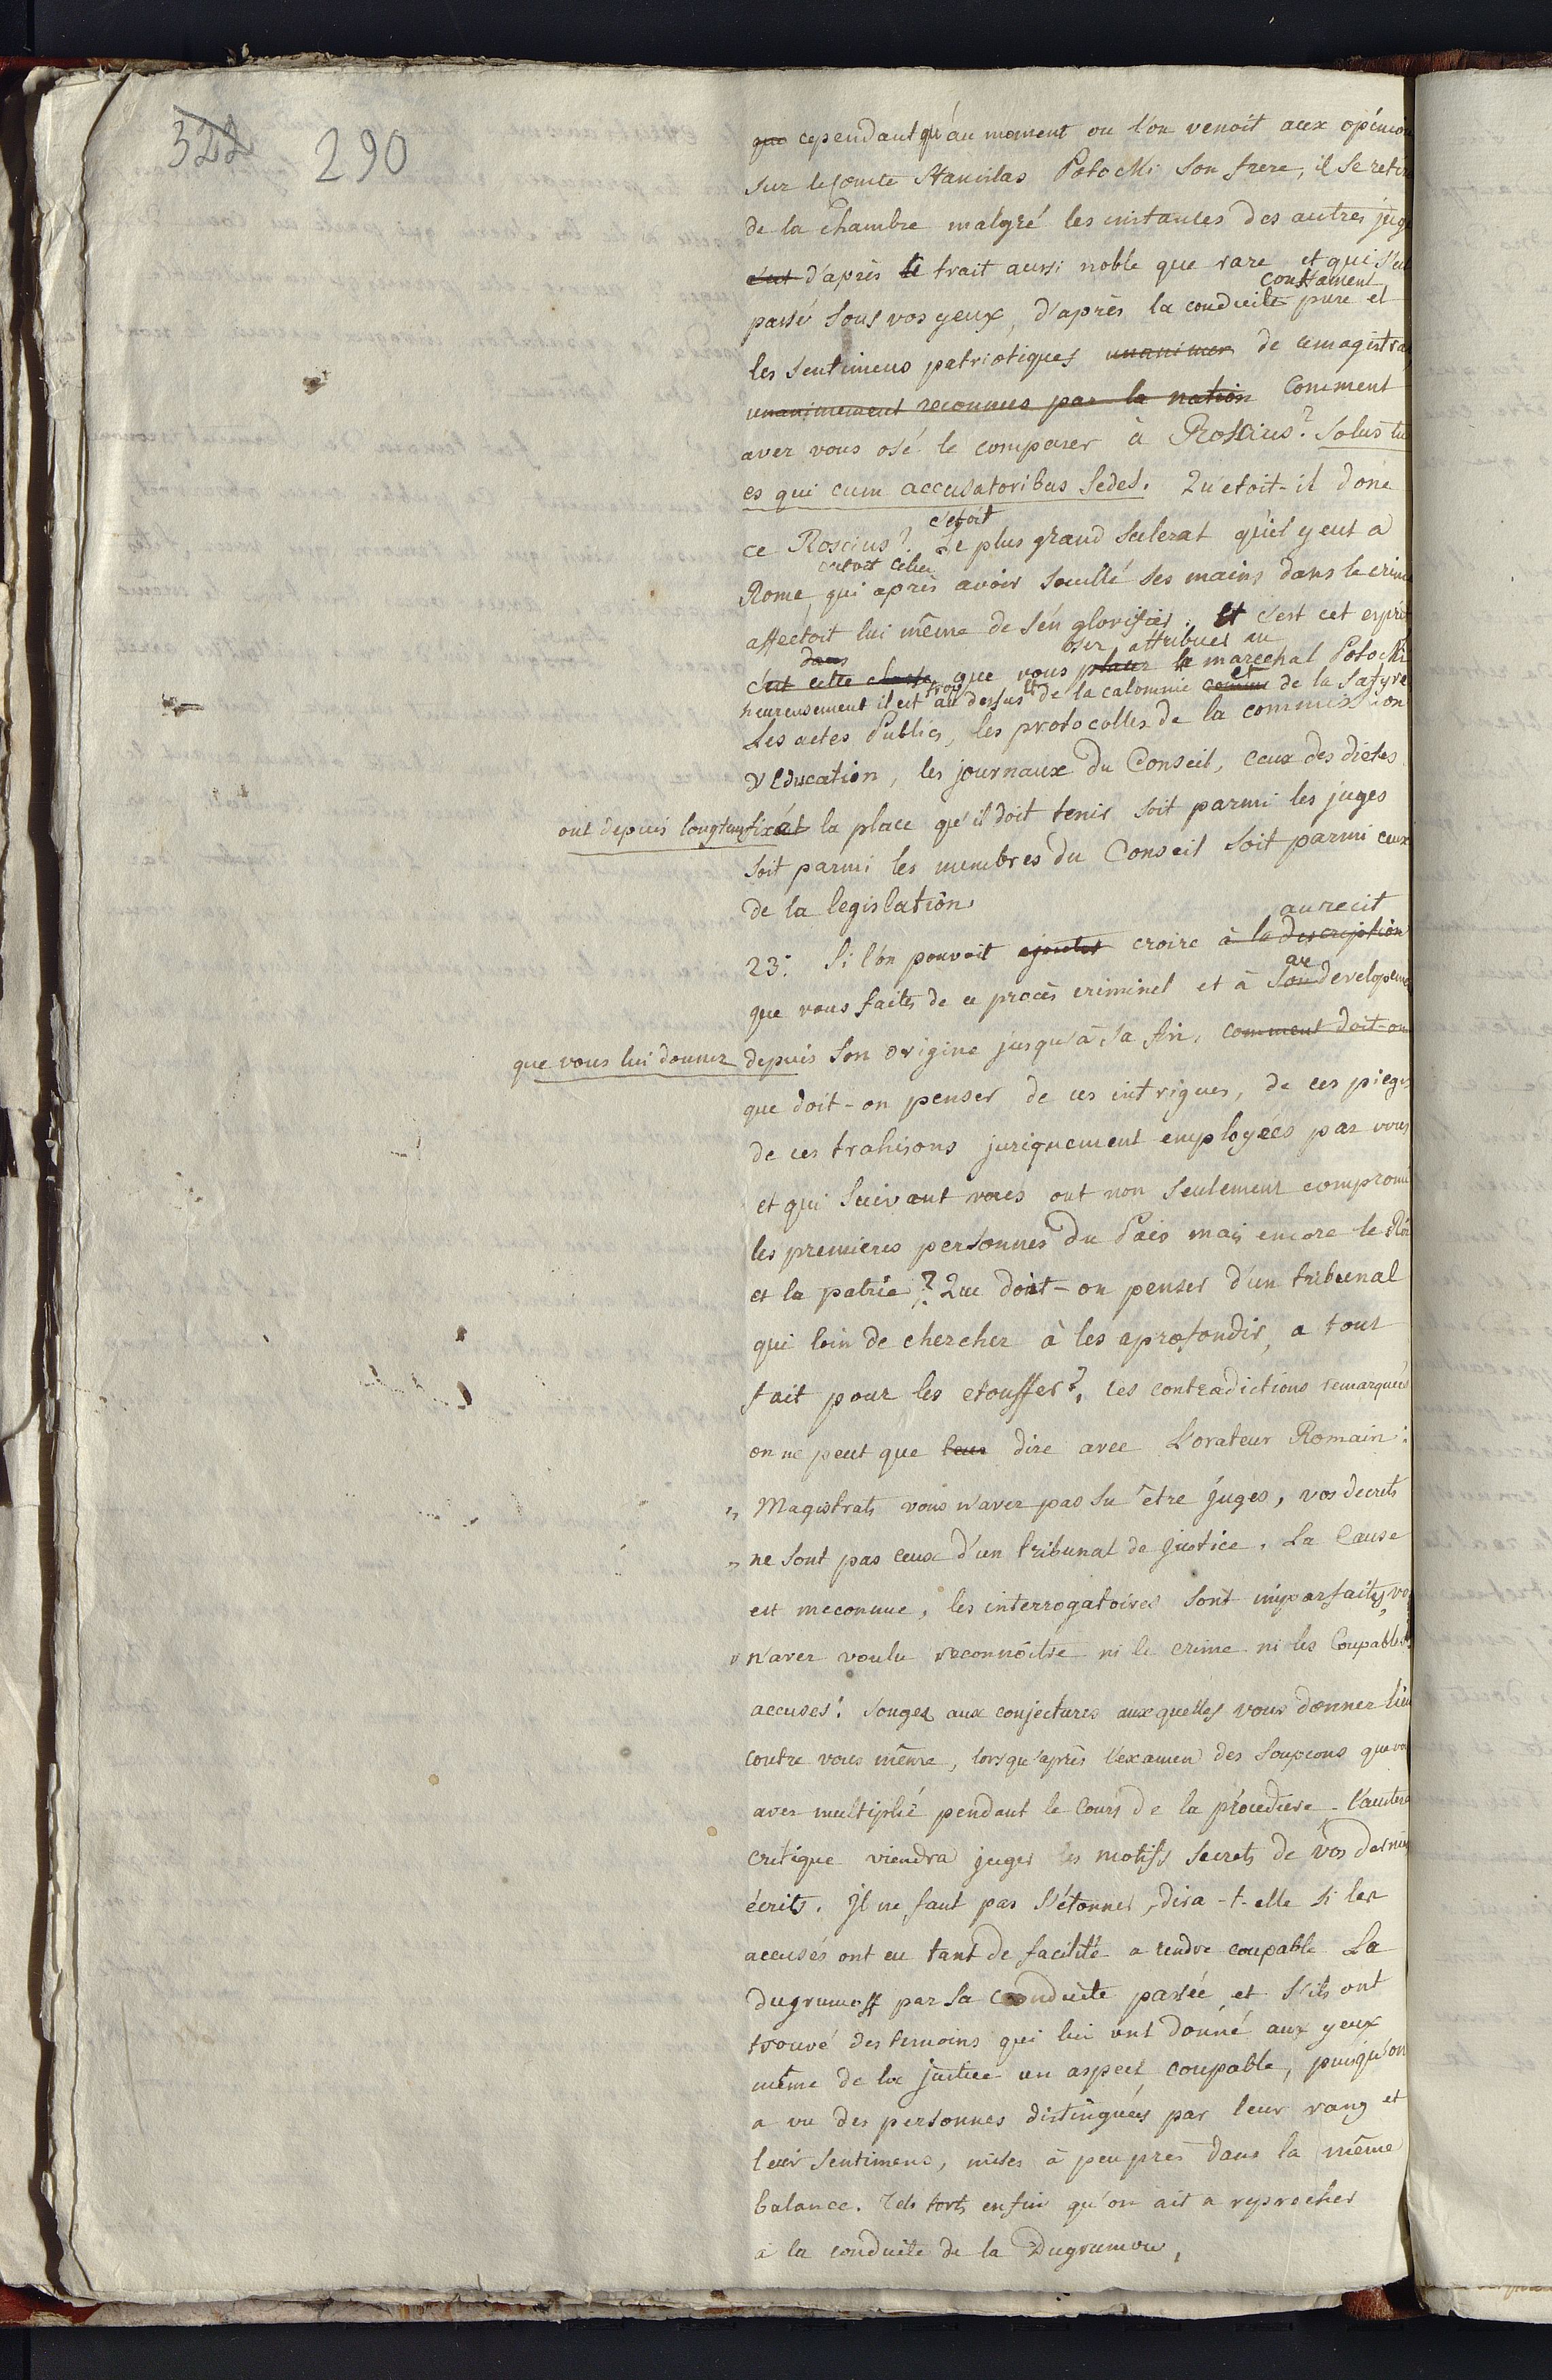 322 290
que cependant qu'au moment ou l'on venoit aux opinion
sur le Comte Stanislas Potocki son frere, il se retir
de la chambre malgré les instances des autres juge
c'est d'après ce trait aussi noble que rare et qui s'est
constament
passé sous vos yeux, d'après la conduite pure et
les sentimens patriotiques unanimes de ce magistrat
unanimement reconnus par la nation Comment
avez vous osé le comparer à Roscius? Solus tu
es qui cum accusatoribus sedes. Qu'etoit-il donc
c'etoit
ce Roscius? Le plus grand scelerat qu'il y eut a
c'etoit celui
Rome, qui après avoir souillé ses mains dans le crime
affectoit lui même de s'en glorifier. Et c'est cet esprit
dans oser attribuer au
c'est cette classe que vous placer le marechal Potocki
heureusement il est trop au dessus et de la calomnie comme et de la satyre
Les actes Publics, les protocolles de la commission
d'Education, les journaux du Conseil, ceux des dietes
ont depuis longtems fixé la place qu'il doit tenir soit parmi les juges
soit parmi les membres du Conseil soit parmi ceux
de la legislation.
au recit
23: Si l'on pouvoit ajouter croire à la description
que vous faites de ce procès criminel et à son developeme
que vous lui donnez depuis son origine jusqu'à sa fin, comment doit-on
que doit-on penser de ces intrigues, de ces pieges
de ces trahisons juriquement employées par vous
et qui suivant vous ont non seulement compromi
les premieres personnes du Païs mais encore le Roi
et la patrie? Que doit-on penser d'un tribunal
qui loin de chercher à les aprofondir, a tout
fait pour les etouffer? Les contradictions remarquées
on ne peut que leur dire avec L'orateur Romain:
„ Magistrats vous n'avez pas su être juges, vos decrets
„ ne sont pas ceux d'un tribunal de justice. La Cause
est meconnue, les interrogatoires sont imparfaits, vo
„ n'avez voulu reconnoître ni le crime ni les Coupables
accusés! songez aux conjectures auxquelles vous donner lieu
contre vous même, lorsqu'après l'examen des soupçons que vo
avez multiplié pendant le cours de la procedure l'austere
critique viendra juger les motifs secrets de vos dernier
écrits. Il ne faut pas s'étonner, dira-t-elle si les
accusés ont eu tant de facilité a rendre coupable La
Dugrumoff par sa conduite passée et s'ils ont
trouvé des temoins qui lui ont donné aux yeux
même de la justice un aspect coupable, puisqu'on
a vu des personnes distinguées par leur rang et
leur sentimens, mises à peu près dans la même
balance. Tels torts enfin qu'on ait a reprocher
à la conduite de la Dugrumow,